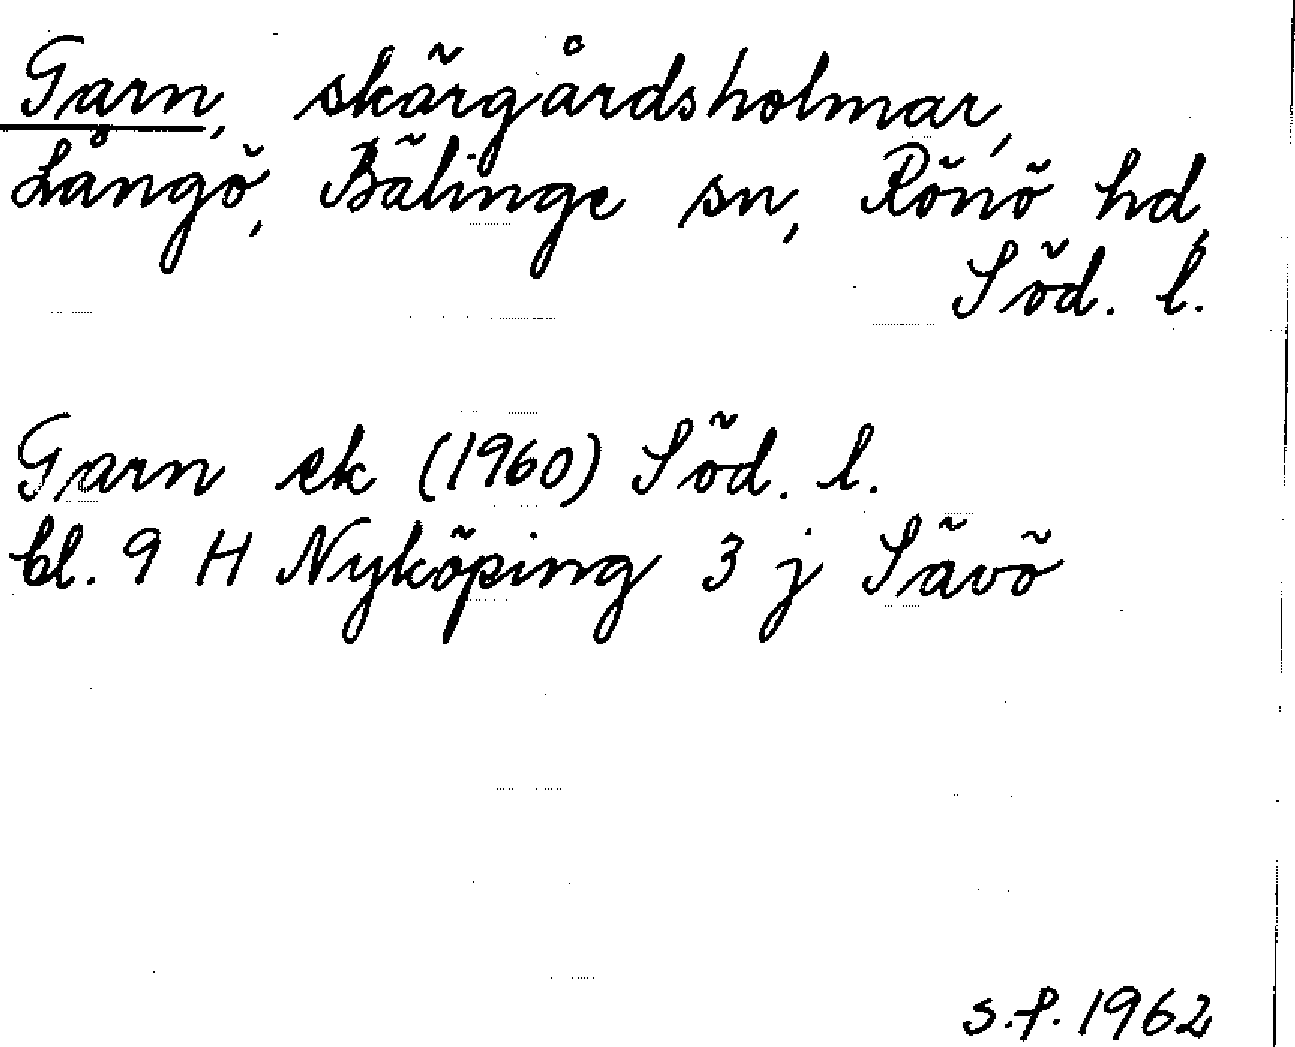 Garn, skärgårdsholmar,
Långö, Bälinge sn, Rönö hd,
Söd. l.
Garn ek (1960) Söd. l.
bl. 9 H Nyköping 3 j Sävö
s.f. 1962